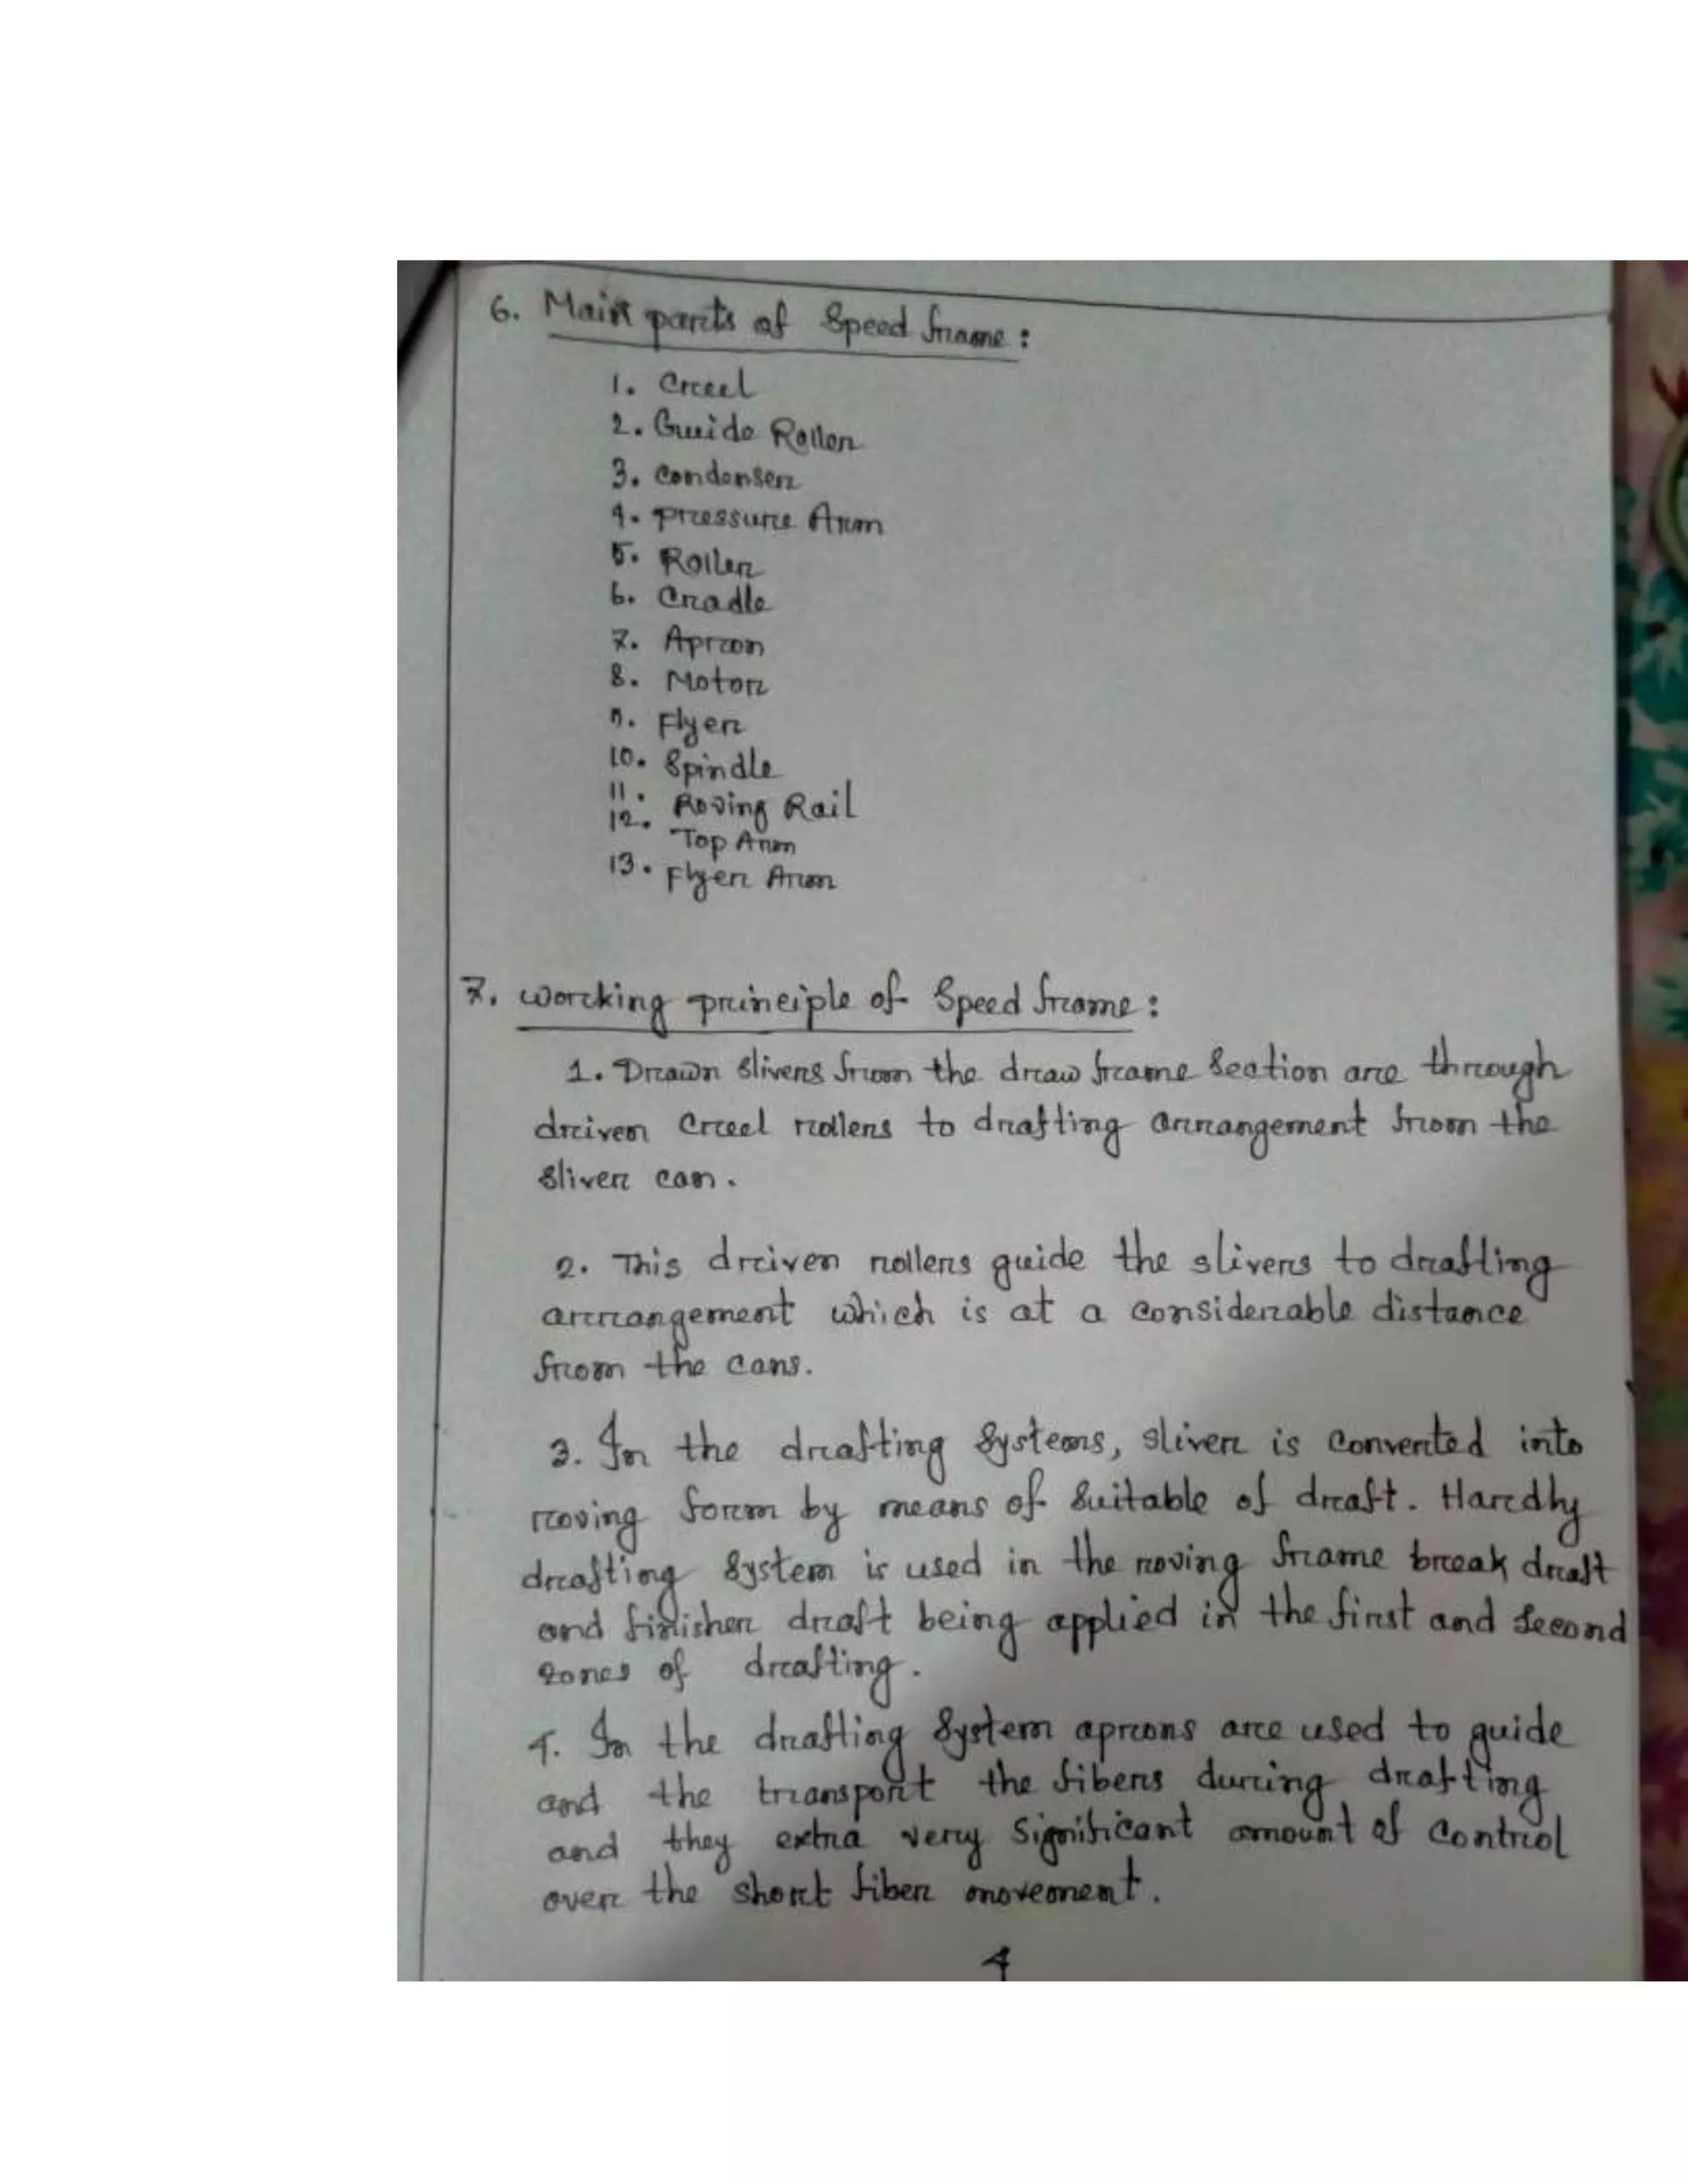 6. Main parts of Speed frame:
1. Creel
2. Guide Roller
3. Condenser
4. Pressure Arm
5. Roller
6. Cradle
7. Apron
8. Motor
9. Flyer
10. Spindle
11. Roving Rail
12. Top Arm
13. Flyer Arm
7. Working principle of Speed frame:
1. Drawn slivers from the draw frame section are through
driven creel rollers to drafting arrangement from the
sliver can.
2. This driven rollers guide the slivers to drafting
arrangement which is at a considerable distance
from the cans.
3. In the drafting systems, sliver is converted into
roving form by means of suitable of draft. Hardly
drafting system is used in the roving frame break draft
and finisher draft being applied in the first and second
zones of drafting.
4. In the drafting system aprons are used to guide
and the transport the fibers during drafting
and they extra very significant amount of control
over the short fiber movement.
4